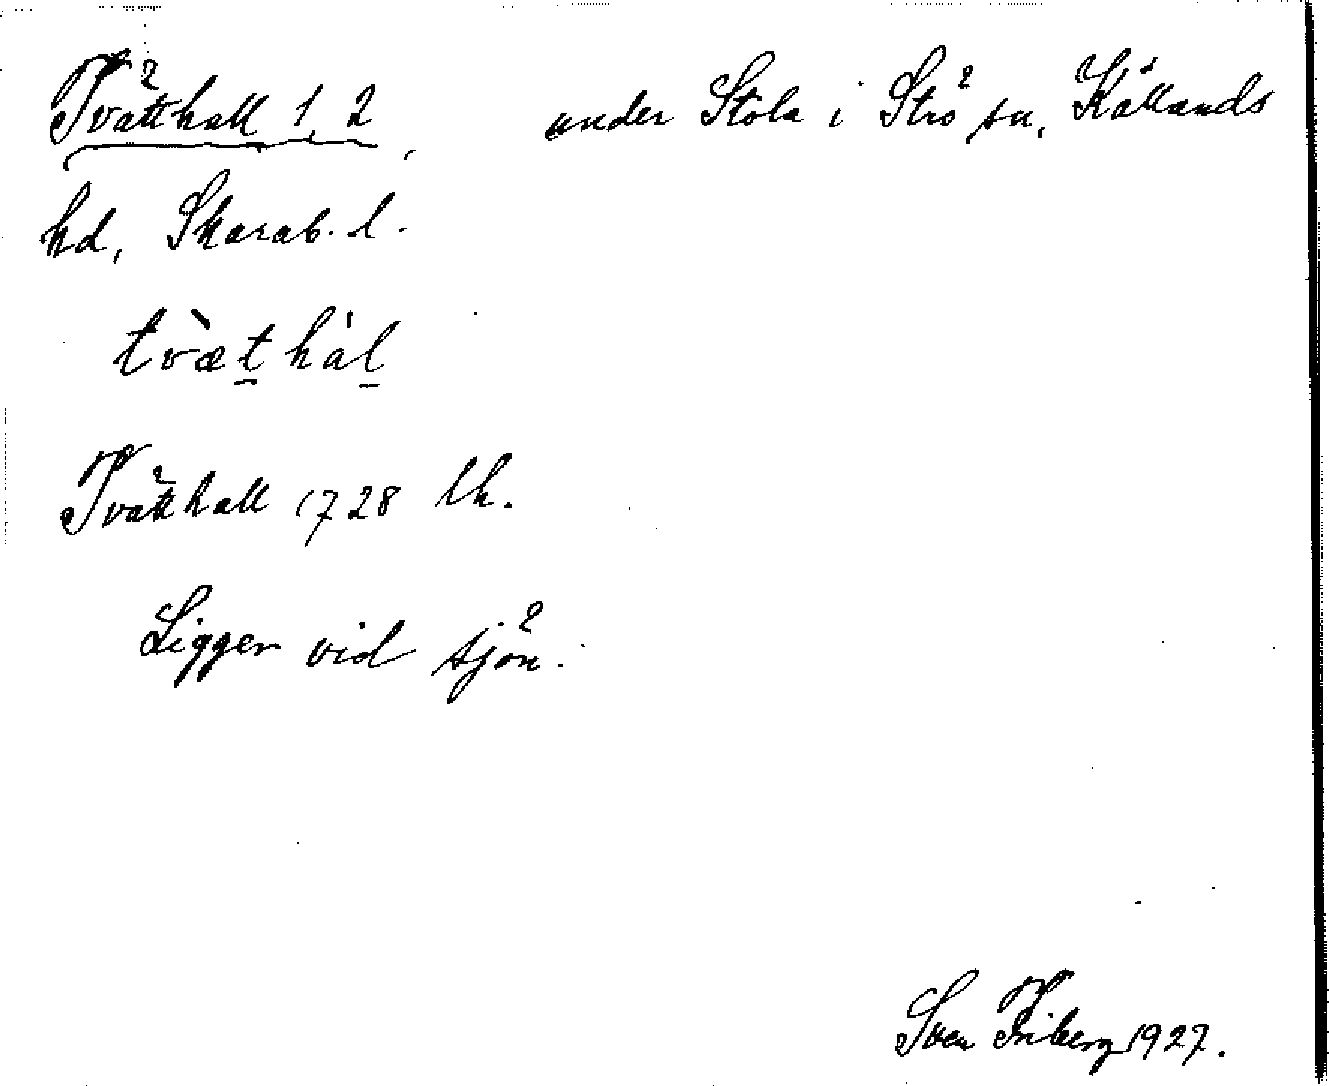 Tvätthall 1, 2, under Stola i Strö sn, Kållands
hd, Skarab. l.
tv̀æt̲hál̲
Tvätthall 1728 lk.
Ligger vid sjön.
Sven Friberg 1927.